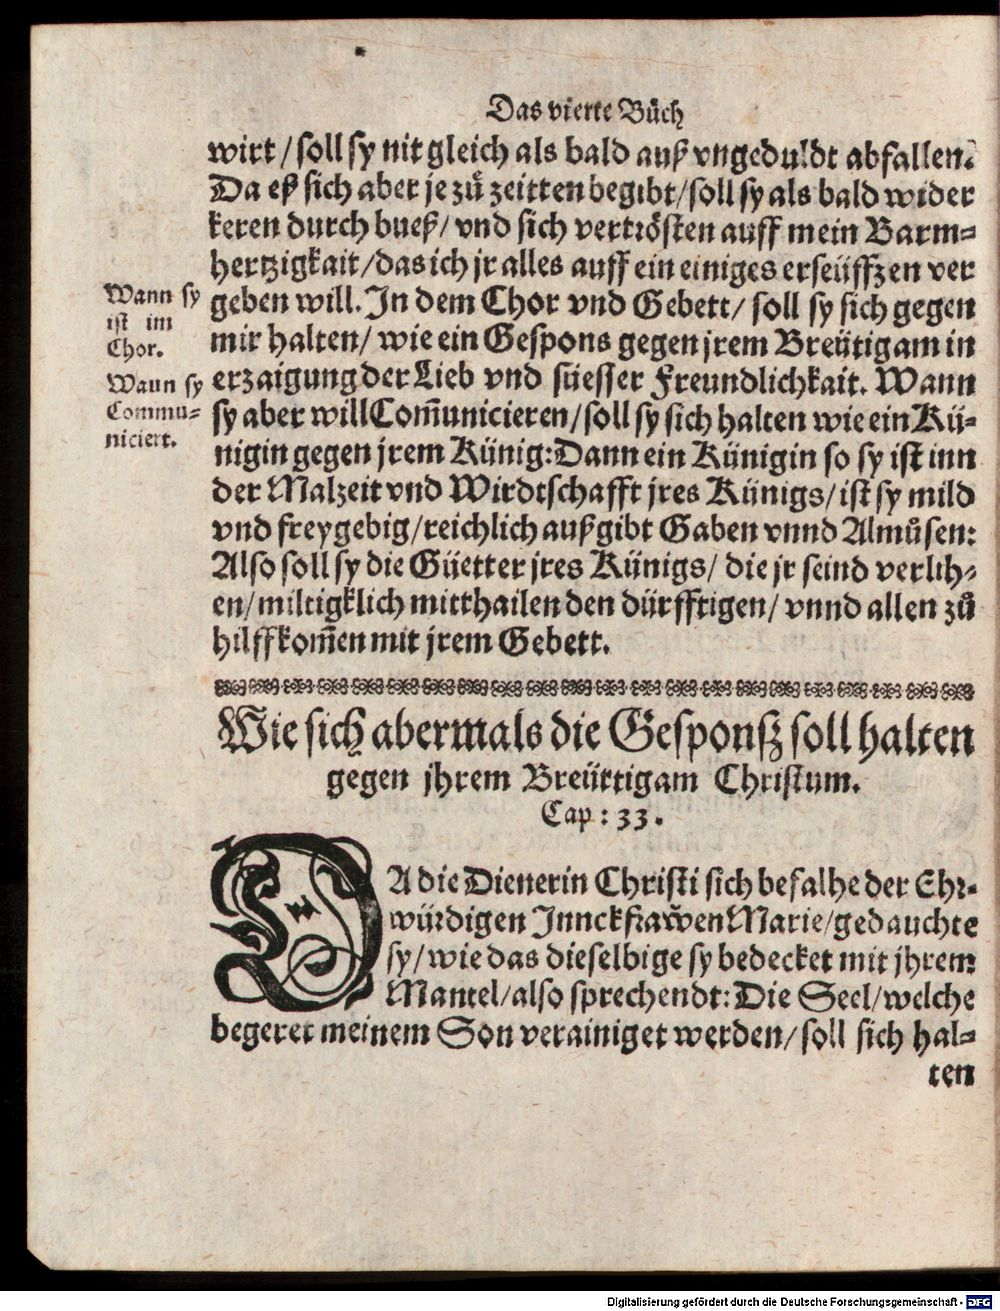 Das vierte Bůch
wirt / soll sy nit gleich als bald auß vngeduldt abfallen.
Da eß sich aber je zů zeitten begibt / soll sy als bald wider
keren durch bueß / vnd sich vertrösten auff mein Barm⸗
hertzigkait / das ich jr alles auff ein einiges erseüffzen ver
geben will. In dem Chor vnd Gebett / soll sy sich gegen
mir halten / wie ein Gespons gegen jrem Breütigam in
erzaigung der Lieb vnd süesser Freundlichkait. Wann
sy aber will Com̃unicieren / soll sy sich halten wie ein Kü⸗
nigin gegen jrem Künig: Dann ein Künigin so sy ist inn
der Malzeit vnd Wirdtschafft jres Künigs / ist sy mild
vnd freygebig / reichlich außgibt Gaben vnnd Almůsen:
Also soll sy die Güetter jres Künigs / die jr seind verlih⸗
en / miltigklich mitthailen den dürfftigen / vnnd allen zů
hilff kom̃en mit jrem Gebett.
Wann sy
ist im
Chor.
Wann sy
Commu⸗
niciert.
Wie sich abermals die Gesponsz soll halten
gegen jhrem Breüttigam Christum.
Cap: 33.
DA die Dienerin Christi sich befalhe der Ehr⸗
würdigen Junckfraw̃en Marie / gedauchte
sy / wie das dieselbige sy bedecket mit jhrem
Mantel / also sprechendt: Die Seel / welche
begeret meinem Son verainiget werden / soll sich hal⸗
ten
Digitalisierung gefördert durch die Deutsche Forschungsgemeinschaft - DFG